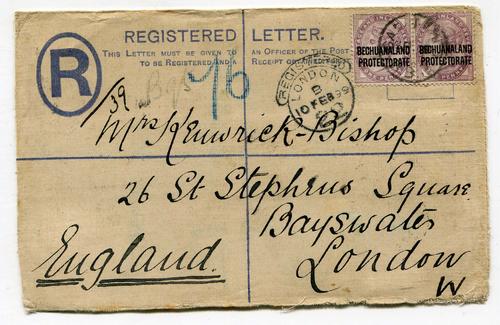 REGISTERED LETTER.
THIS LETTER MUST BE GIVEN TO AN OFFICER OF THE POST
TO BE REGISTERED AND A RECEIPT OBTAINED
R
BECHUANALAND PROTECTORATE
BECHUANALAND PROTECTORATE
REGISTERED
LONDON
B
10 FEB 99
39
Mrs Kenwrick-Bishop
26 St Stephens Square
Bayswater
England.
London
W